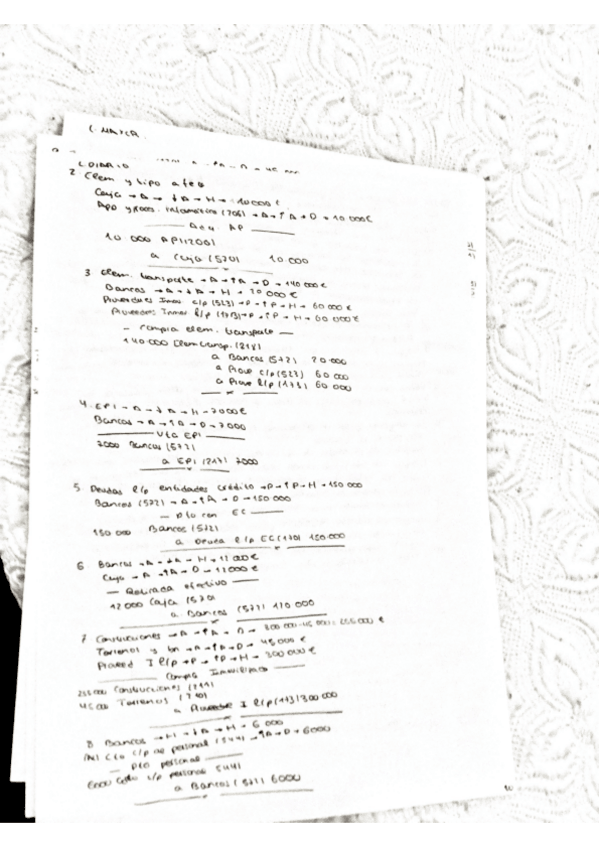 L. DIARIO
2. Elem y tipo afec
Caja → A → ↓A → H → 10000 €
(206) → A → ↑A → D → 10 000€
AP
10.000 API (206)
a Caja (570) 10.000
3. Elem. transporte → A → ↑A → D → 140 000 €
Bancos → A → ↓A → H → 20 000 €
Proveedores Inmov. c/p (523) → P → ↑P → H → 60 000 €
Proveedores Inmov l/p (173) → P → ↑P → H → 60 000 €
— compra elem. transporte —
140.000 Elem transp. (218)
a Bancos (572) 20 000
a Prove c/p (523) 60 000
a Prove l/p (173) 60 000
4. EPI → A → ↓A → H → 7000 €
Bancos → A → ↑A → D → 7000
Vta EPI
7000 Bancos (572)
a EPI (217) 7000
5. Deudas l/p entidades crédito → P → ↑P → H → 150 000
Bancos (572) → A → ↑A → D → 150 000
— pto con EC —
150 000 Bancos (572)
a Deuda l/p EC (170) 150 000
6. Bancos → A → ↓A → H →
Caja → A → ↑A → D → 12000 €
— Retirada efectivo —
12 000 Caja (570)
a Bancos (572)
7. Construcciones → A → ↑A → D → 300 000 - 45 000 = 255 000 €
Terrenos y bn → A → ↑A → D → 45 000 €
Proveed I l/p → P → ↑P → H → 300 000 €
Compra Inmovilizado
255 000 Construcciones (211)
45 000 Terrenos (210)
a Proveedore I l/p (173) 300 000
8. Bancos → ↓A → H → 6 000
c/p al personal (544) → ↑A → D → 6000
— pto personal —
6000 c/p personal 544)
a Bancos (572) 6000